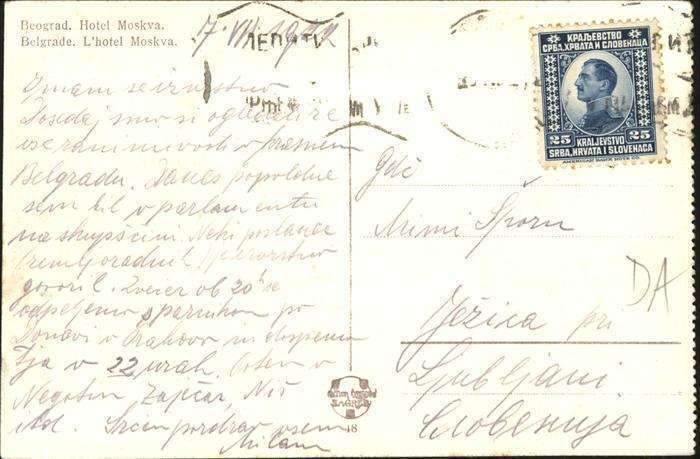 Beograd. Hotel Moskva.
Belgrade. L'hotel Moskva.
7. VII. 192
КРАЉЕВСТВО
СРБА, ХРВАТА И СЛОВЕНАЦА
25 25
KRALJEVSTVO
SRBA, HRVATA I SLOVENACA
AMERICAN BANK NOTE CO.
Imam se izvrstno
Dosedaj smo si ogledali že
vse zanimivosti v
Belgradu. Danes popoldne
sem bil v parlamentu
na skupščini. Neki poslanec
govoril. Zvečer ob 20h se
odpeljemo s parnikom po
Donavi v in dospemo
tja v 22 urah. Potem v
Negotin, Zaječar, Niš
itd. Srčen pozdrav vsem
Milan
Gdč
Mimi Šporn
Ježica pri
Ljubljani
Словенија
DA
ZAGREB
18